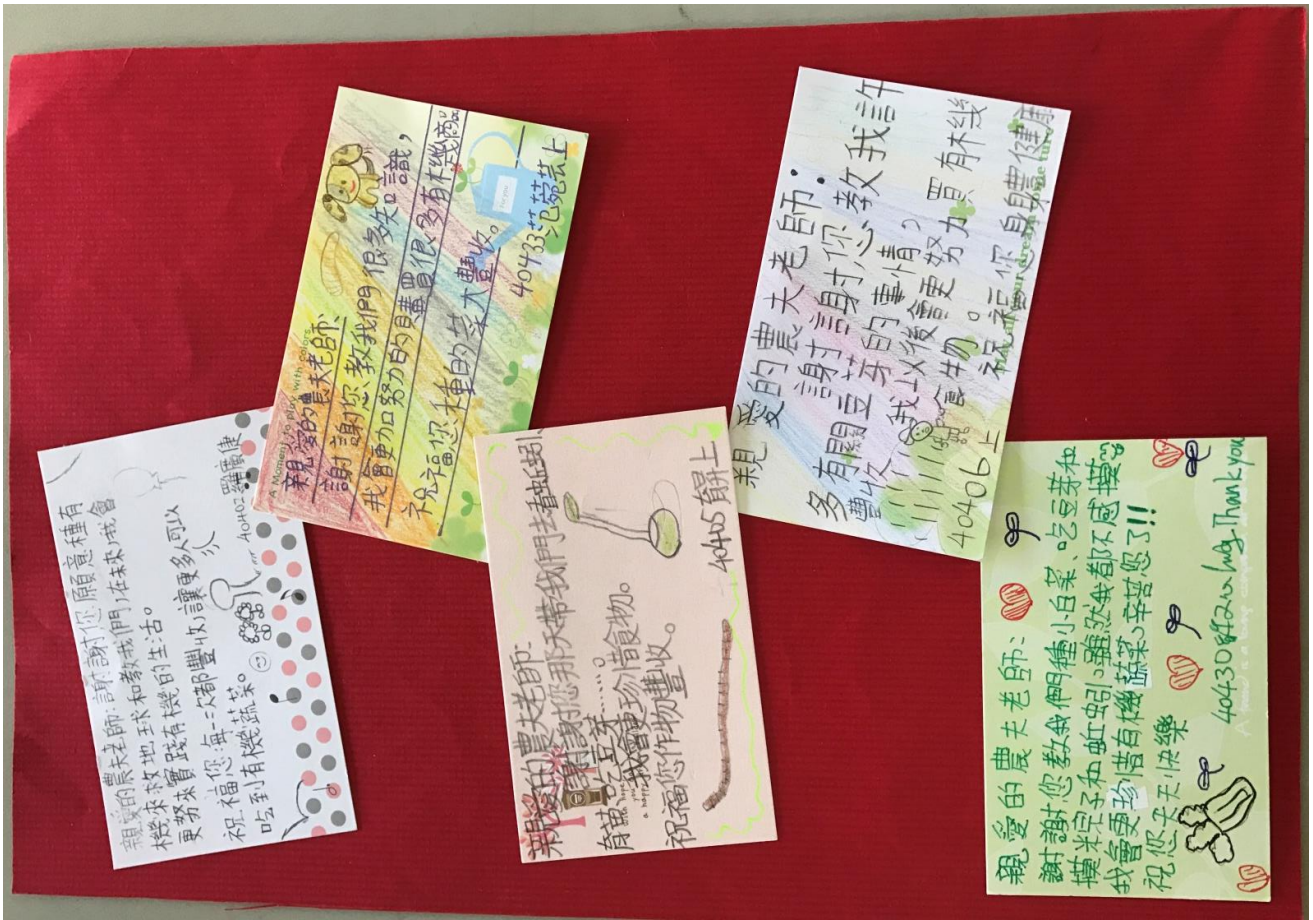 親愛的農夫老師：謝謝您願意種有
機來救地球和教我們，在未來，我會
更努來實踐有機的生活。
祝福您：每一次都豐收，讓更多人可以
吃到有機蔬菜。
40403
A Moment to play with colors
親愛的農夫老師、
謝謝您教我們很多知識，
我會更加努力的購買很多有機商品
祝福您種的菜大豐收。
40433范菀芸上
親愛的農夫老師：
謝謝您那天帶我們去看蚯蚓、
育苗、吃豆芽……。
我會更珍惜食物。
祝福您作物豐收。
40405
親愛的農夫老師：
謝謝謝您教我許
多有關豆芽的事情，
我以後會更努力買有機
食物。
祝福你身體健康
豐收
40406上
親愛的農夫老師：
謝謝您教我們種小白菜、吃豆芽和
摸粽子和虹蚓。雖然我都不感摸。
我會更珍惜有機蔬菜。辛苦您了!!
祝您天天快樂
40430
Thank you